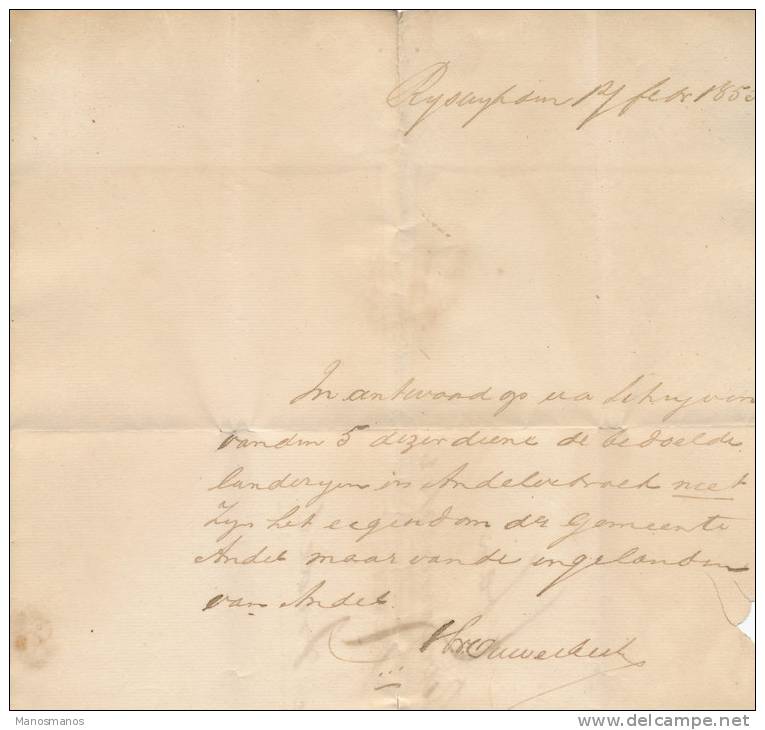 Ryswyk den 17 febr. 185
In antwoord op uw schryven
van den 5 dezer diene de bedoelde
landeryen in Andelsbroek niet
zyn het eegendom der Gemeente
Andel maar van de ingelanden
van Andel.
Manosmanos
www.delcampe.net